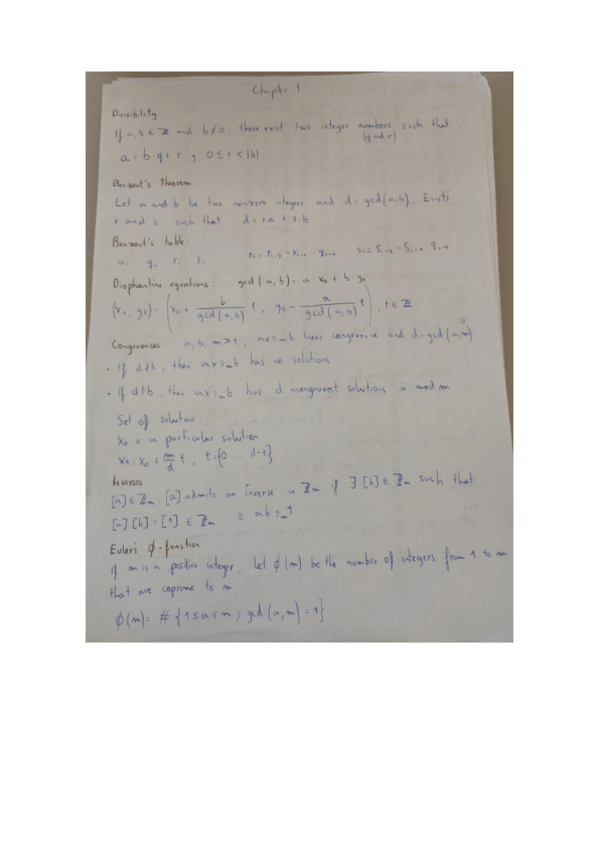 Chapter 1
Divisibility
If a, b ∈ ℤ and b≠0, there exist two integer numbers such that
(q and r)
a = b·q + r, 0 ≤ r < |b|
Benzout's theorem
Let a and b be two nonzero integers and d = gcd(a,b). Exists
r and s such that d = ra + s·b
Benzout's table:
ai qi ri si
Diophantine equations: gcd(a,b) = a·x₀ + b y₀
(xt, yt) = (x₀ + b/gcd(a,b) t, y₀ − a/gcd(a,b) t), t ∈ ℤ
Congruences a, b, m > 1, ax ≡m b linear congruence and d = gcd(a,m)
· If d∤b, then ax ≡m b has no solutions
· if d|b, then ax ≡m b has d incongruent solutions in mod m
Set of solution:
x₀ is a particular solution
xt = x₀ + m/d t, t = {0 ... d-1}
Inverses
[a] ∈ ℤm. [a] admits an inverse in ℤm if ∃ [b] ∈ ℤm such that
[a][b] = [1] ∈ ℤm ≡ ab ≡m 1
Euler's ϕ-function
If m is a positive integer, let ϕ(m) be the number of integers from 1 to m
that are coprime to m
ϕ(m) = # {1≤a≤m ; gcd(a,m) = 1}